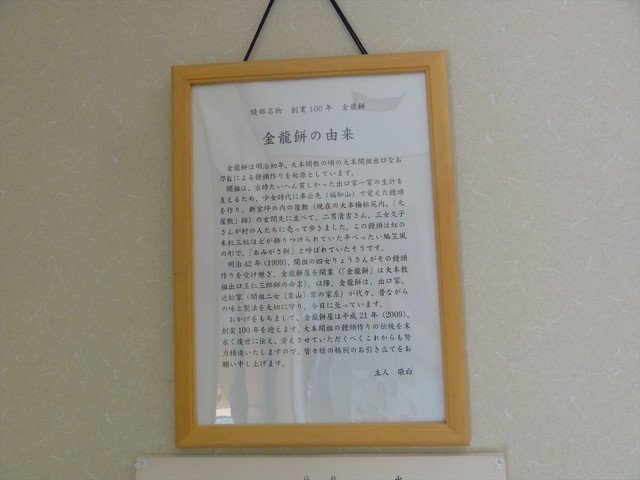 綾部名物　創業100年　金龍餅
金龍餅の由来
金龍餅は明治初年、大本開教の頃の大本開祖出口なお
刀自による饅頭作りを起源としています。
開祖は、当時たいへん貧しかった出口家一家の生計を
支えるため、少女時代に奉公先（福知山）で覚えた饅頭
を作り、新宮坪の内の屋敷（現在の大本梅松苑内、「元
屋敷」跡）の玄関先に並べて、二男清吉さん、三女久子
さんが村の人たちに売って歩きました。この饅頭は紅の
米粒三粒ほどが飾りつけられていた平べったい編笠風
の形で、「あみがさ餅」と呼ばれていたそうです。
明治42年（1909）、開祖の四女りょうさんがその饅頭
作りを受け継ぎ、金龍餅屋を開業（「金龍餅」は大本教
祖出口王仁三郎師の命名）。以降、金龍餅は、出口家、
近松家（開祖二女［栗山］琴の家系）が代々、昔ながら
の味と製法を大切に守り、今日に至っています。
おかげをもちまして、金龍餅屋は平成21年（2009）、
創業100年を迎えます。大本開祖の饅頭作りの伝統を末
永く後世に伝え、栄えさせていただくべくこれからも努
力精進いたしますので、皆々様の格別のお引き立てをお
願い申し上げます。
主人　敬白